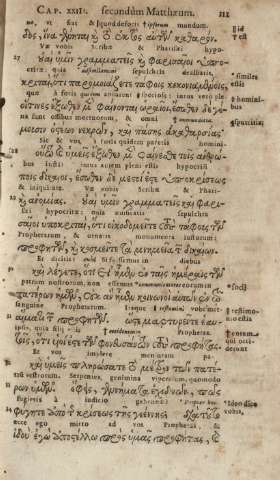 CAP. XXIII. secundum Matthæum. 111
δος, ἵνα γένηται καὶ ὁ ἐκτὸς αὐτῶν καθαρόν.
Væ vobis Scribæ & Pharisæi hypo-
οὐαὶ ὑμῖν γραμματεῖς καὶ φαρισαῖοι ὑπο-
critæ quia sepulchris dealbatis,
κριταὶ, ὅτι παρομοιάζετε τάφοις κεκονιαμένοις,
quæ à foris parent speciosa, intus vero ple
οἵτινες ἔξωθεν μὲν φαίνονται ὡραῖοι, ἔσωθεν δὲ γέ-
na sunt ossibus mortuorum, & omni
μουσιν ὀστέων νεκρῶν, καὶ πάσης ἀκαθαρσίας
Sic & vos, à foris quidem paretis
οὕτω καὶ ὑμεῖς ἔξωθεν μὲν φαίνεσθε τοῖς ἀνθρώ-
bus iusti: intus autem pleni estis hypocrisi
ποις δίκαιοι, ἔσωθεν δὲ μεστοί ἐστε ὑποκρίσεως
& iniquitate. Væ vobis Scribæ & Phari-
καὶ ἀνομίας. οὐαὶ ὑμῖν γραμματεῖς καὶ φαρι-
sæi hypocritæ: quia ædificatis sepulchra
σαῖοι ὑποκριταὶ, ὅτι οἰκοδομεῖτε τοὺς τάφους τῶν
Prophetarum & ornatis monumenta iustorum:
προφητῶν, καὶ κοσμεῖτε τὰ μνημεῖα τῶν δικαίων.
Et dicitis: Si fuissemus in diebus
καὶ λέγετε, ὅτι εἰ ἦμεν ἐν ταῖς ἡμέραις τῶν
patrum nostrorum, non essemus eorum in
πατέρων ἡμῶν, οὐκ ἂν ἦμεν κοινωνοὶ αὐτῶν ἐν τῷ
sanguine Prophetarum. Itaque
αἵματι τῶν προφητῶν. ὥστε μαρτυρεῖτε ἑαυ-
ipsis, quia filii estis Prophetas
τοῖς, ὅτι υἱοί ἐστε τῶν φονευσάντων τοὺς προφήτας.
Et vos implete mensuram pa
καὶ ὑμεῖς πληρώσατε τὸ μέτρον τῶν πατέ-
trum vestrorum. Serpentes, genimina viperarum, quomodo
ρων ὑμῶν. ὄφεις, γεννήματα ἐχιδνῶν, πῶς
fugietis à iudicio gehennæ?
φύγητε ἀπὸ τῆς κρίσεως τῆς γεέννης; διὰ τοῦτο
ecce ego mitto ad vos Prophetas, &
ἰδοὺ ἐγὼ ἀποστέλλω πρὸς ὑμᾶς προφήτας, καὶ